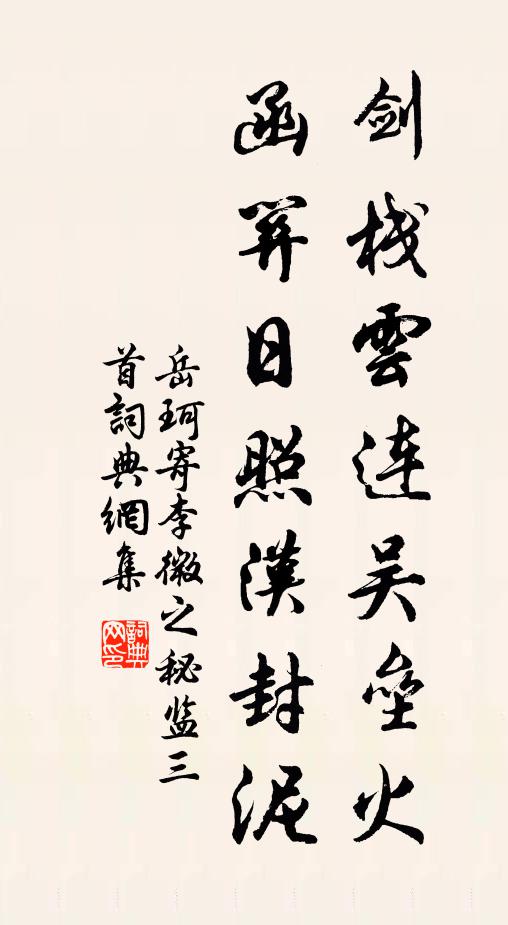 剑栈雲连吴垒火
函关日照漢封泥
岳珂寄李微之秘监三
首詞典網集
詞典网印